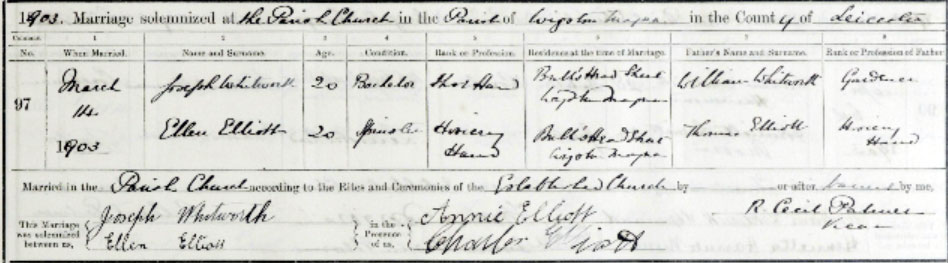 1903. Marriage solemnized at the Parish Church in the Parish of Wigston Magna in the County of Leicester
Columns. 1 2 3 4 5 6 7 8
No. When Married. Name and Surname. Age. Condition. Rank or Profession. Residence at the time of Marriage. Father's Name and Surname. Rank or Profession of Father
March Joseph Whitworth 20 Bachelor Shoe Hand Bull's Head Street William Whitworth Gardener
97 14 Wigston Magna
1903 Ellen Elliott 20 Spinster Hosiery Bull's Head Street Thomas Elliott Hosiery
Hand Wigston Magna Hand
Married in the Parish Church according to the Rites and Ceremonies of the Established Church by or after Banns by me,
This Marriage was solemnized between us, Joseph Whitworth in the Presence of us, Annie Elliott R. Cecil Palmer
Ellen Elliott Charles Elliott Vicar